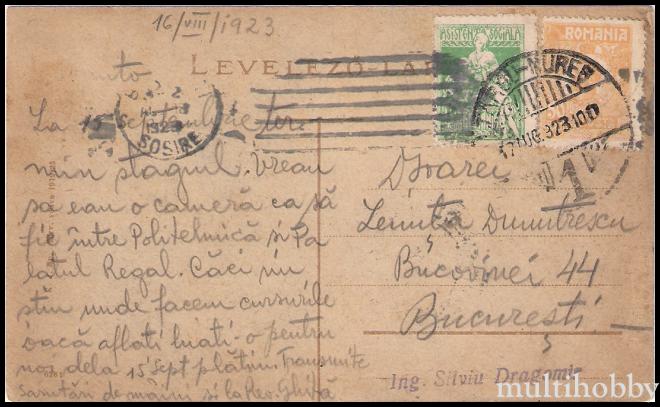 16/VIII/1923
LEVELEZŐ-LAP
ASISTENTA SOCIALA
ROMANIA
MUREŞ
17 AUG. 923
1923
SOSIRE
1
La 15 Septembrie
min stagiul. Vreau
sa eau o cameră ca să
fie între Politehnică si Pa
latul Regal. Căci nu
stiu unde facem cursurile
Dacă aflati luati-o pentru
noi dela 15 Sept plătim. Transmite
sarutări de mâini si la
Dsoarei
Lenuta Dumitrescu
Bucovinei 44
Bucuresti
Ing. Silviu Dragomir
multihobby